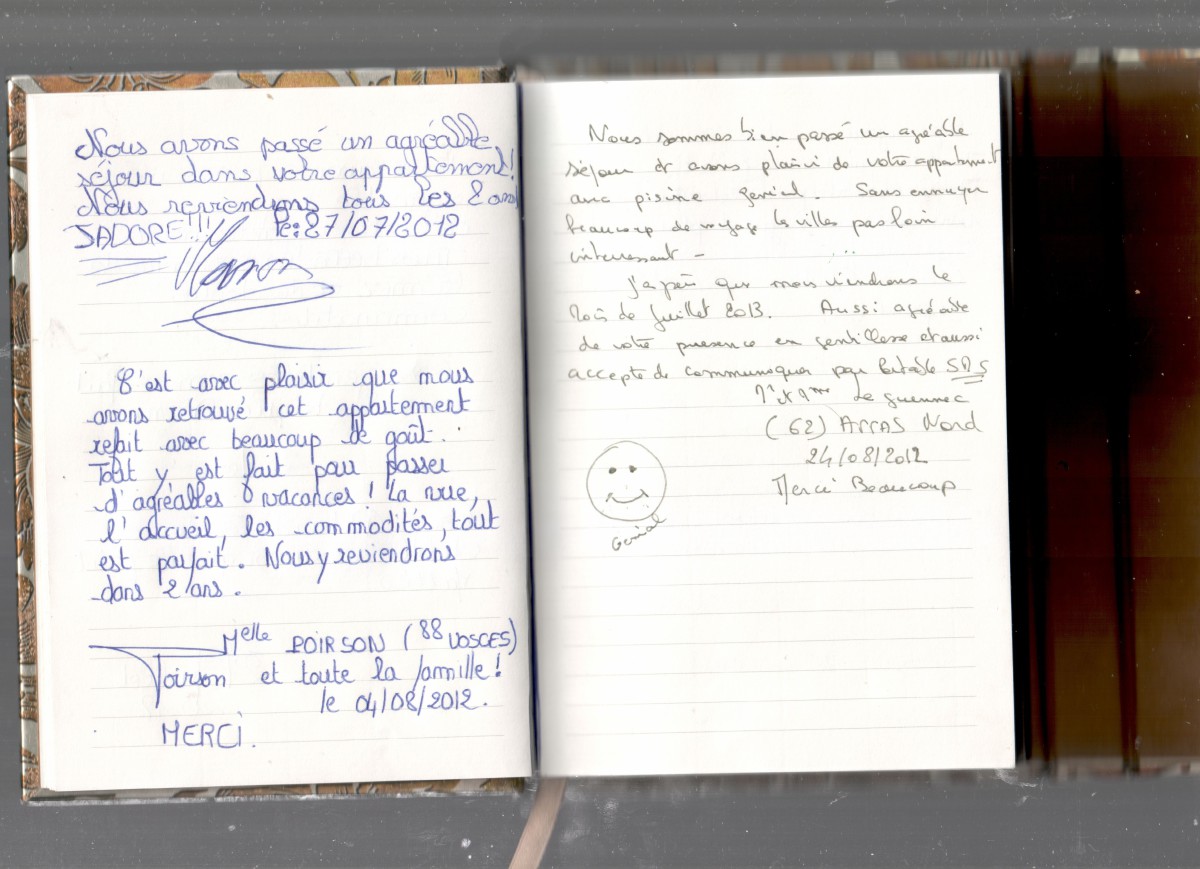 Nous avons passé un agréable
séjour dans votre appartement!
Nous reviendrons tous les 2 ans
JADORE!!! le: 27/07/2012
C'est avec plaisir que nous
avons retrouvé cet appartement
refait avec beaucoup de goût.
Tout y est fait pour passer
d'agréables vacances! La vue,
l'accueil, les commodités, tout
est parfait. Nous y reviendrons
dans 2 ans.
Melle POIRSON (88 VOSGES)
Poirson et toute la famille!
le 04/08/2012.
MERCI.
Nous sommes bien passé un agréable
séjour et avons plaisir de votre appartement
avec piscine genial. Sans ennuyer
beaucoup de voyage les villes pas loin
interessant -
que nous viendrons le
mois de Juillet 2013. Aussi agréable
de votre presence en gentillesse et aussi
accepte de communiquer par SMS
Mr et Mme Le Guennec
(62) ARRAS Nord
24/08/2012
Merci Beaucoup
Genial